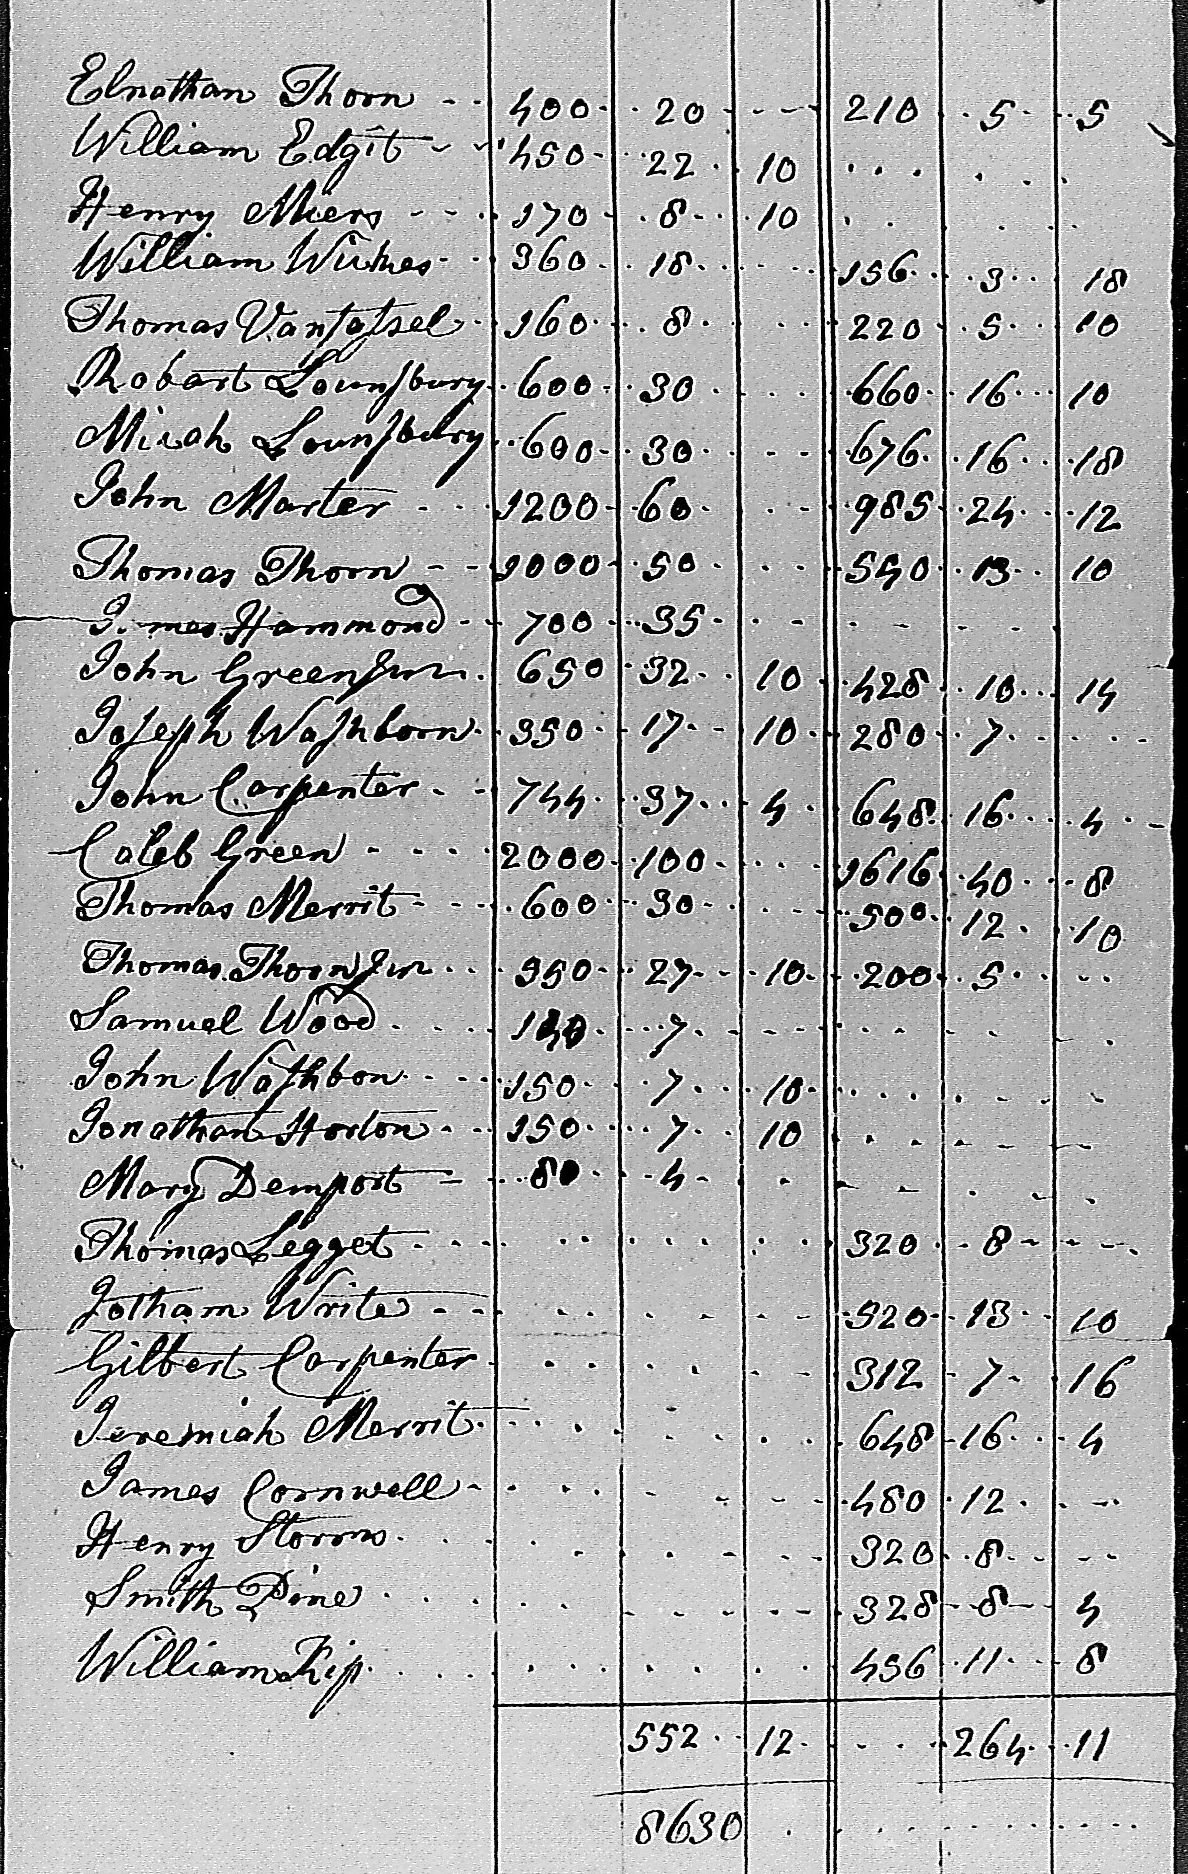 Elnathan Thorn 400 20 210 5 5
William Edgit 450 22 10
Henry Miers 170 8 10
William Wickes 360 18 156 3 18
Thomas Vantatsel 160 8 220 5 10
Robart Lounsbury 600 30 660 16 10
Micah Lounsbury 600 30 676 16 18
John Marter 1200 60 985 24 12
Thomas Thorn 1000 50 540 13 10
James Hammond 700 35
John Green Junr 650 32 10 428 10 14
Joseph Washborn 350 17 10 280 7
John Carpenter 744 37 4 648 16 4
Caleb Green 2000 100 1616 40 8
Thomas Merrit 600 30 500 12 10
Thomas Thorn Junr 550 27 10 200 5
Samuel Wood 140 7
John Wathbon 150 7 10
Jonathan Horton 150 7 10
Mary Demport 80 4
Thomas Legget 320 8
Jotham Write 520 13 10
Gilbert Carpenter 312 7 16
Jeremiah Merrit 648 16 4
James Cornwell 480 12
Henry Storms 320 8
Smith Pine 328 8 4
William Kip 456 11 8
552 12 264 11
8630